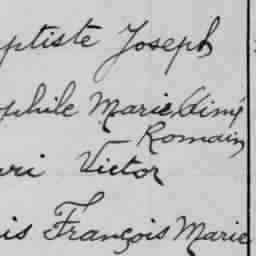 ptiste Joseph
ophile Marie Aimé
Romain
ri Victor
is François Marie